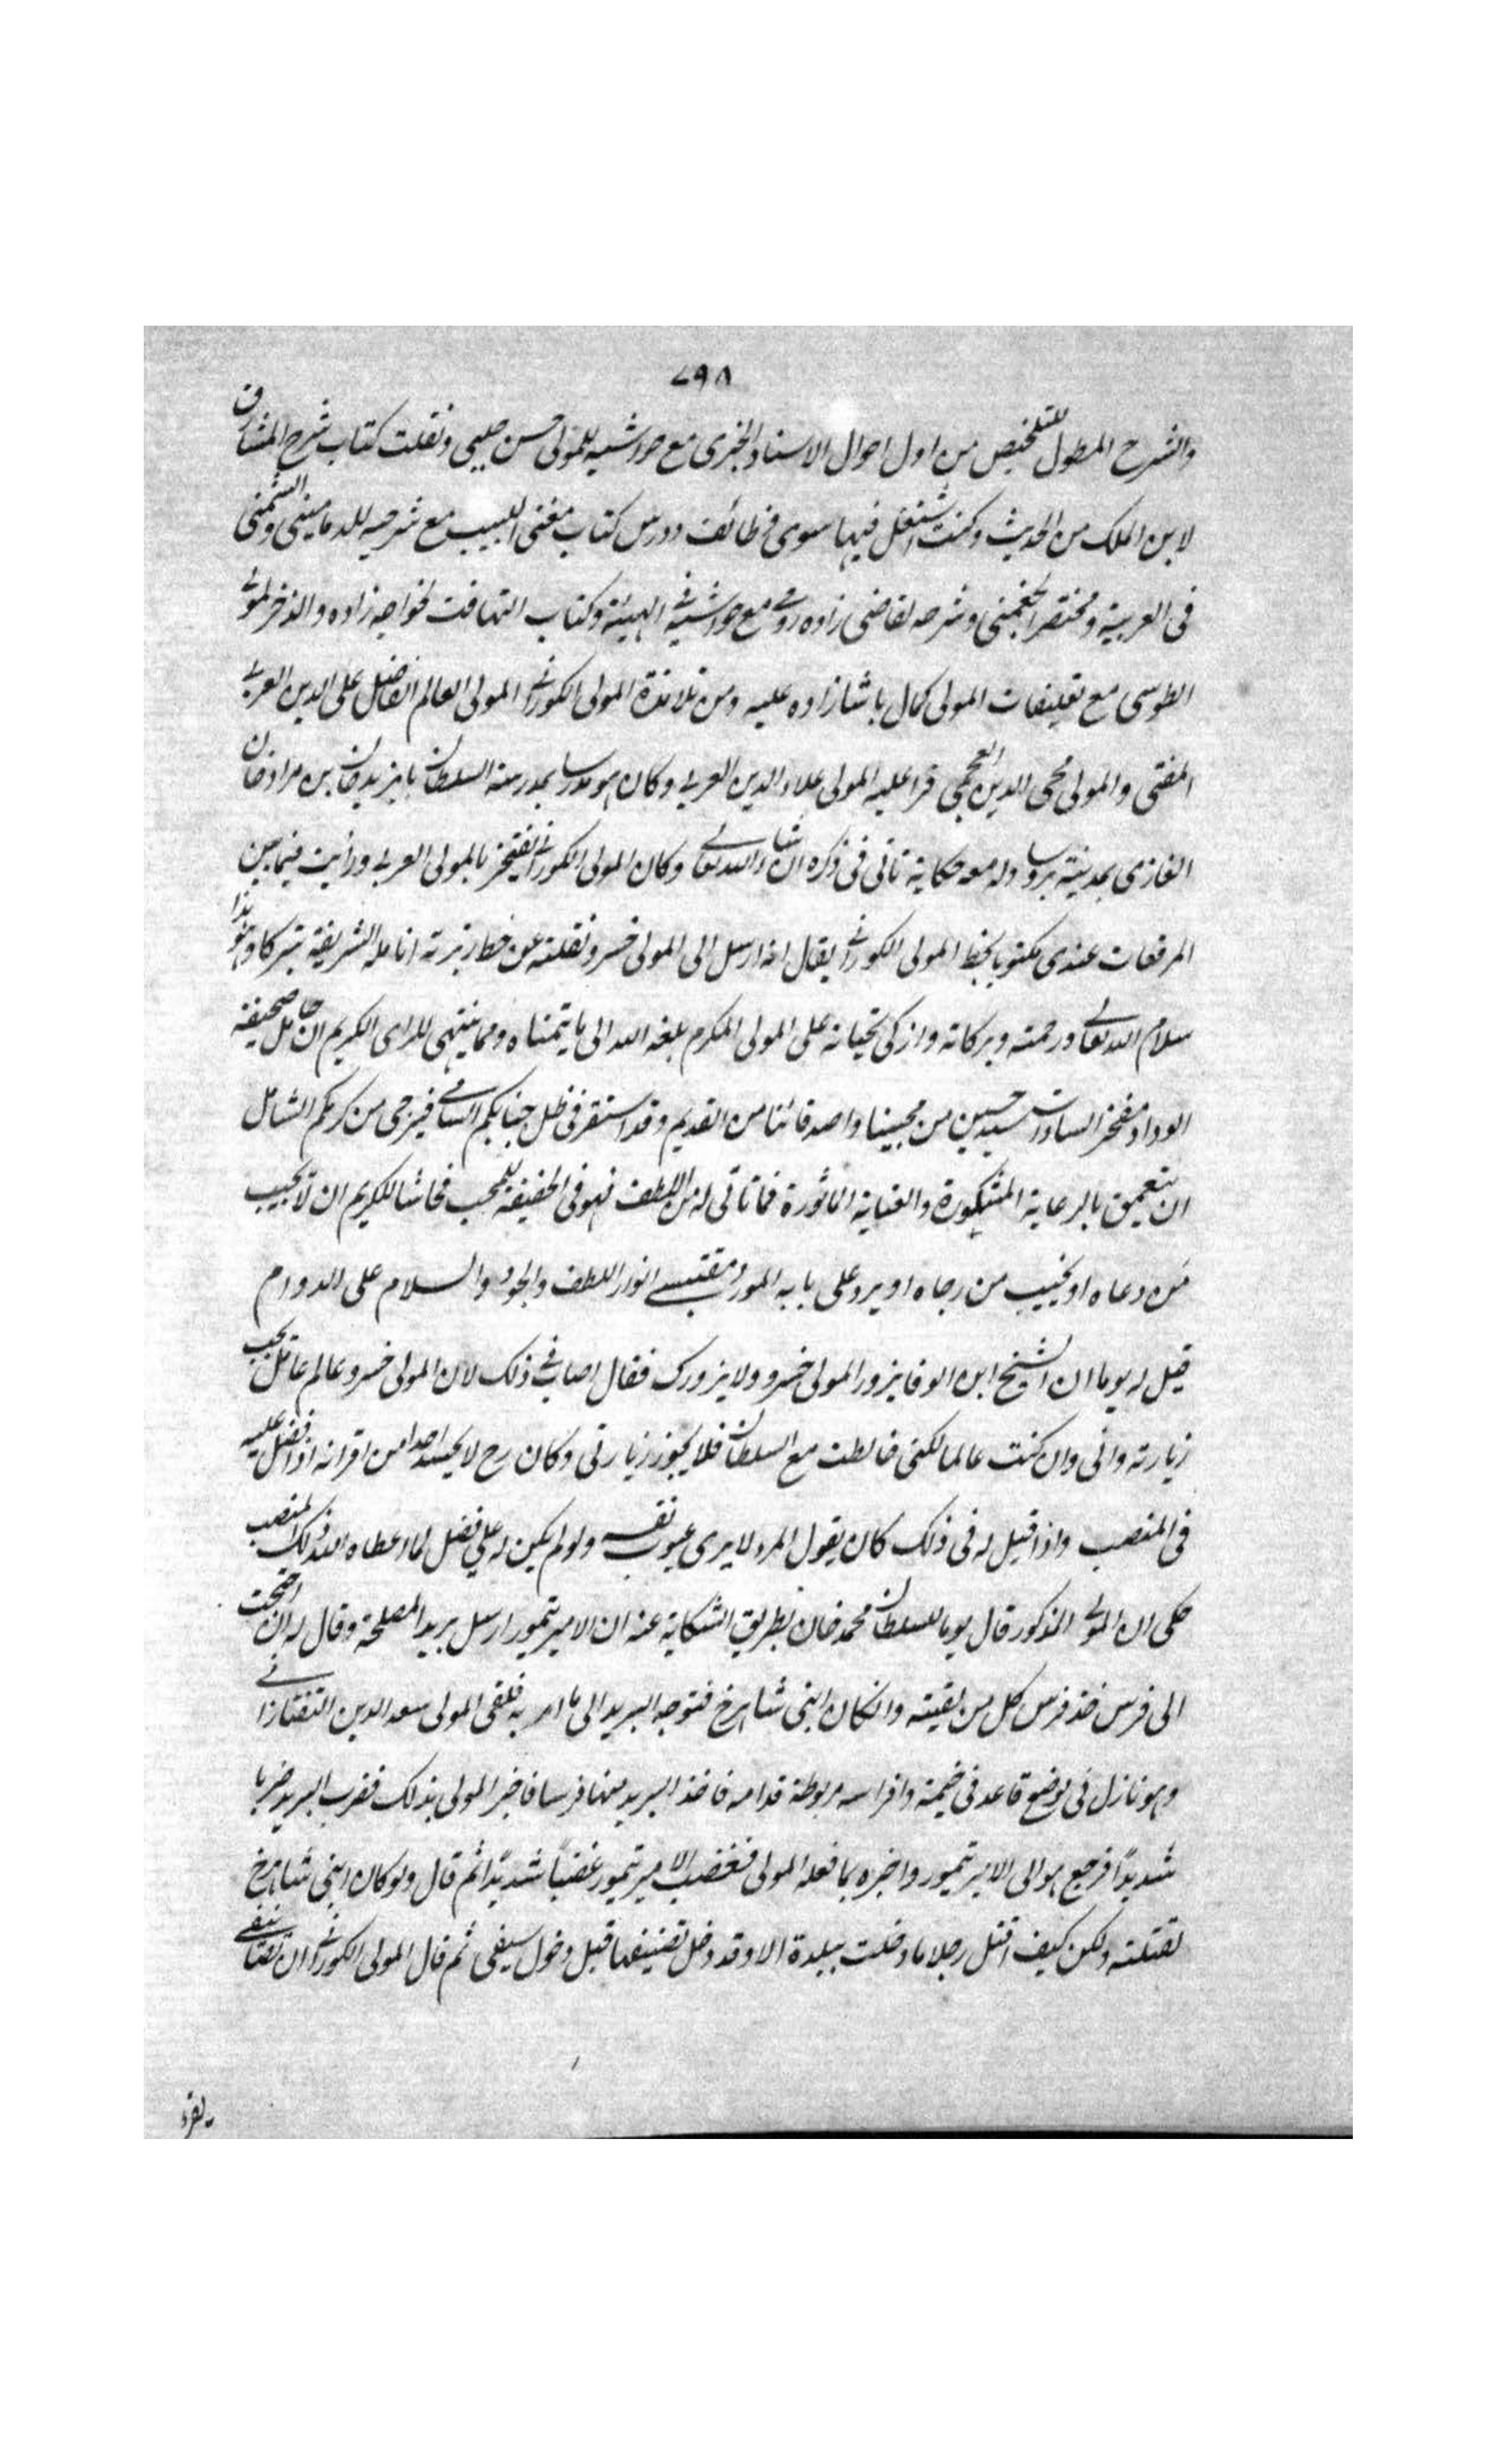 ٧٩٨
والشرح المطول للتلخيص من اول احوال الاسناد الخبرى مع حواشيه للمولى حسن چلبى ونقلت كتاب شرح المشارق
لابن الملك من الحديث وكنت اشتغل فيها سوى وظائف ودرس كتاب مغنى اللبيب مع شرحيه للدمامينى والشمنى
فى العربية ومختصر الجغمنى وشرحه لقاضى زاده رومى مع حواشيه فى الهيئة وكتاب التهافت لخواجه زاده والذخر لمولى
الطوسى مع تعليقات المولى كمال باشا زاده عليه ومن تلامذة المولى الكورانى المولى العالم الفاضل على الدين العربى
المفتى والمولى محى الدين العجمى قرأ عليه المولى علاء الدين العربى وكان هو مدرسا بمدرسة السلطان بايزيد خان بن مراد خان
الغازى بمدينة بروسا وله معه حكاية تأتى فى ذكره ان شاء الله تعالى وكان المولى الكورانى يفتخر بالمولى العربى ورأيت فيما بين
المرقعات عندى مكتوبا بخط المولى الكورانى يقال انه ارسل الى المولى خسرو ونقلته عن خط زبرته انامله الشريفة تبركا وهو هذا
سلام الله تعالى ورحمته وبركاته وازكى تحياته على المولى المكرم بلغه الله الى ما يتمناه ومما ينتهى للراى الكريم ان حامل صحيفة
الوداد مفخر السادات سيد حسين من محبينا واصدقائنا من القديم وقد استقر فى ظل جنابكم السامى فيرجى من كرمكم الشامل
ان يتعمق بالرعاية المشكورة والعناية المأثورة فما تأتى له من اللطف فهو فى الحقيقة للمحب فحاشا للكريم ان لا يجيب
من دعاه او يخيب من رجاه او يرد على بابه المورد مقتبسى انوار اللطف والجود والسلام على الدوام
قيل له يوما ان الشيخ ابن الوفا يزور المولى خسرو ولا يزورك فقال اصاب فى ذلك لان المولى خسرو عالم عامل يجب
زيارته وانى وان كنت عالما لكنى خالطت مع السلطان فلا يجوز زيارتى وكان رح لا يحسد احدا من اقرانه اذا فضل عليه
فى المنصب واذا قيل له فى ذلك كان يقول المرء لا يرى عيوب نفسه ولو لم يكن له على فضل لما اعطاه الله ذلك المنصب
حكى ان المولى المذكور قال يوما للسلطان محمد خان بطريق الشكاية عنه ان الامير تيمور ارسل بريدا لمصلحة وقال له ان احتجت
الى فرس خذ فرس كل من لقيته وان كان ابنى شاهرخ فتوجه البريد الى ما امر به فلقى المولى سعد الدين التفتازانى
وهو نازل فى موضع قاعد فى خيمة وافراسه مربوطة قدامه فاخذ البريد منها فرسا فاخبر المولى بذلك فضرب البريد ضربا
شديدًا فرجع هو الى الامير تيمور واخبره بما فعله المولى فغضب الامير تيمور غضبًا شديدًا ثم قال ولو كان ابنى شاهرخ
لقتلته ولكن كيف اقتل رجلا ما دخلت ببلدة الا وقد دخل تصنيفها قبل دخول سيفى ثم قال المولى الكورانى ان تصانيفى
يقرء